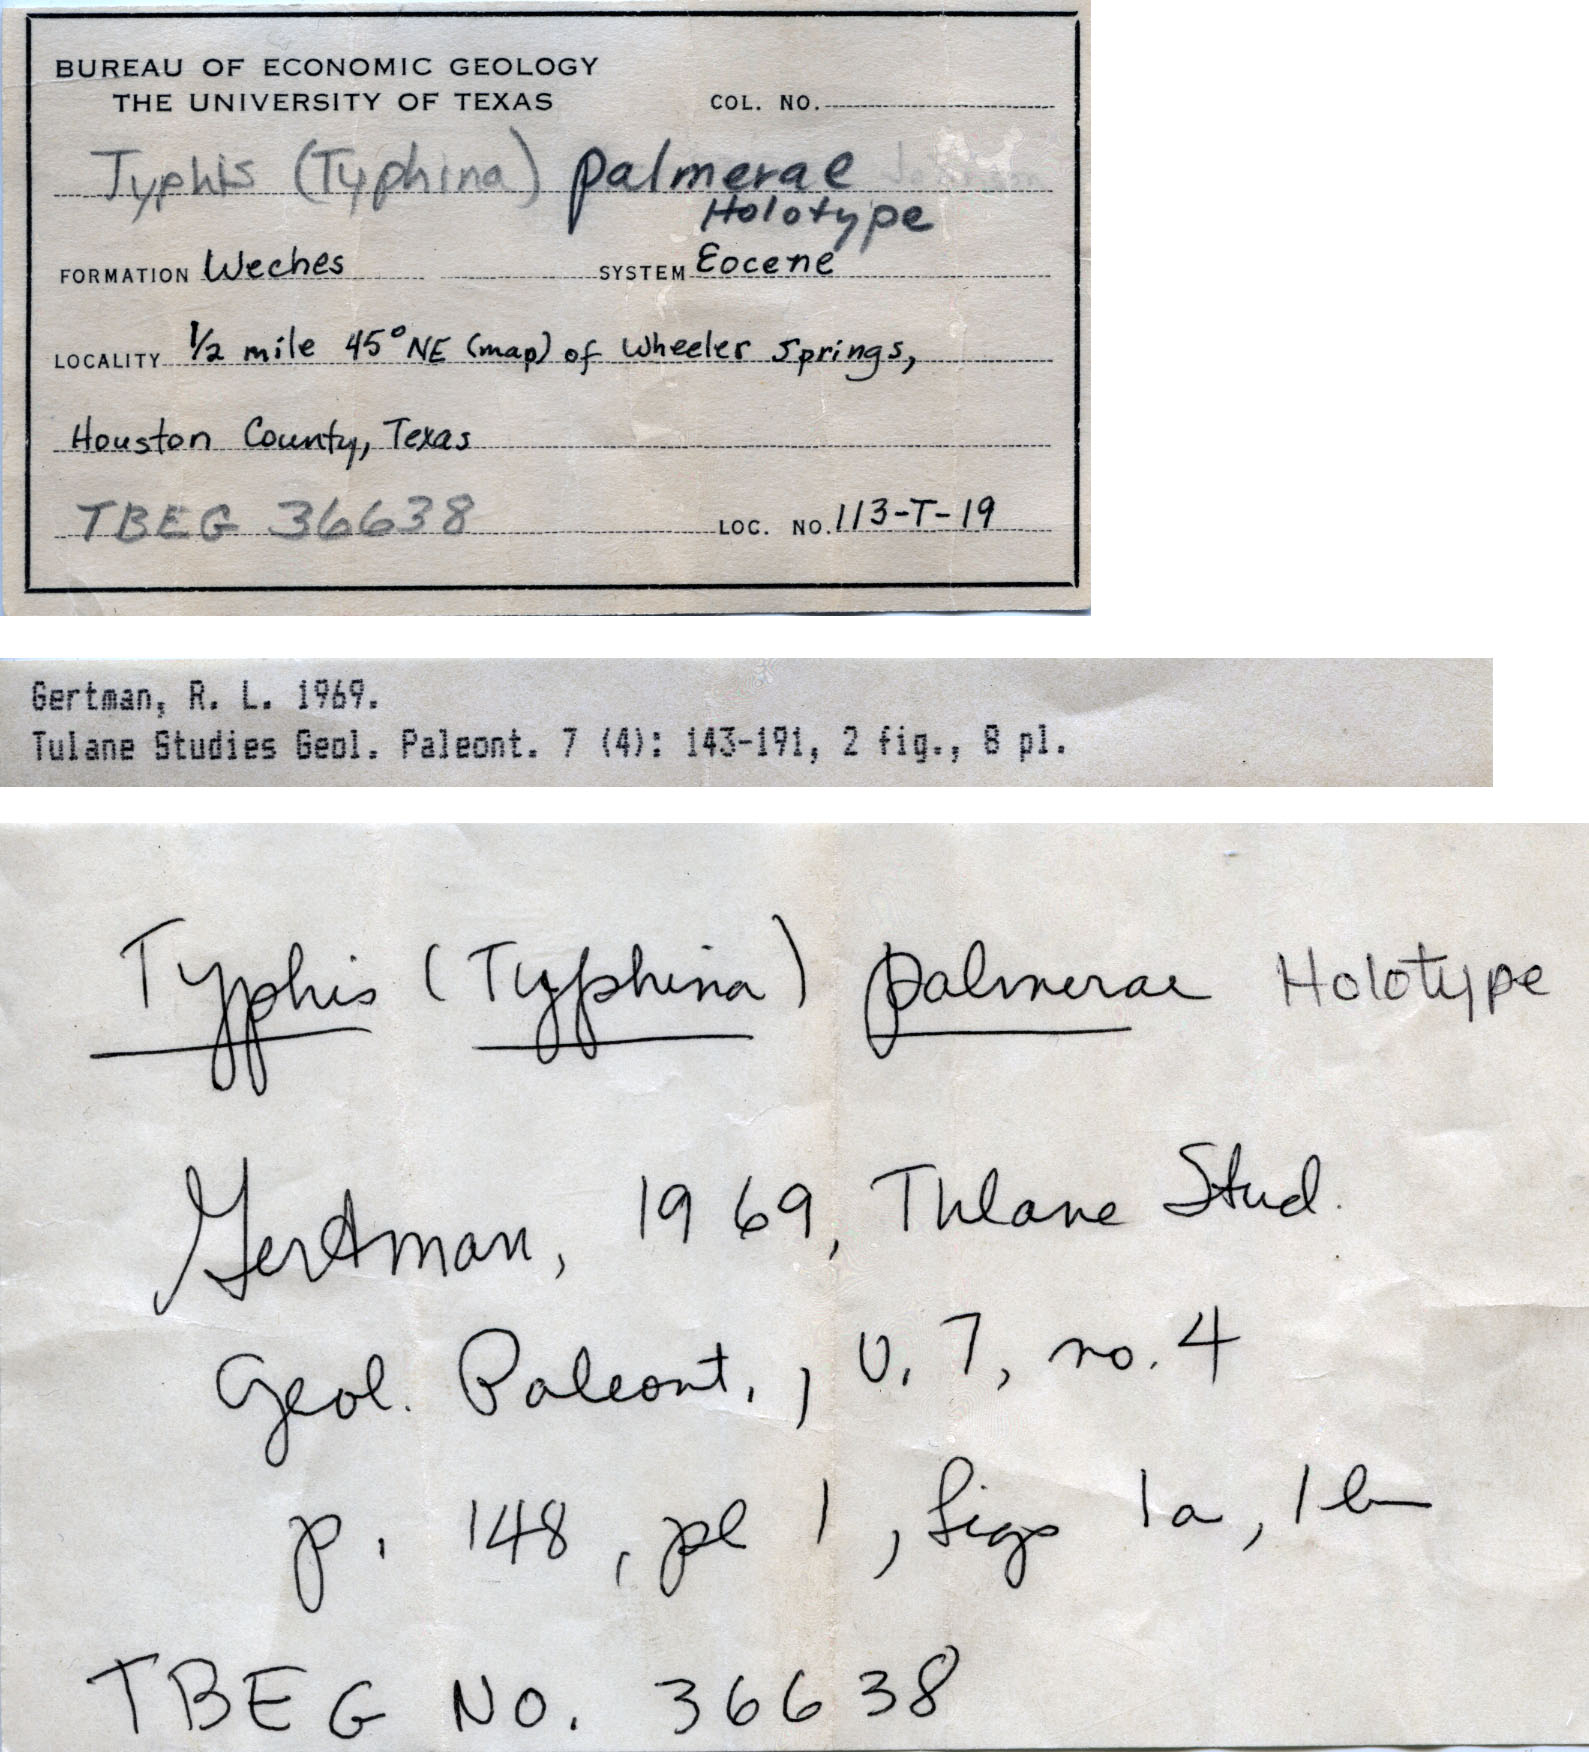 BUREAU OF ECONOMIC GEOLOGY
THE UNIVERSITY OF TEXAS COL. NO.
Typhis (Typhina) palmerae
Holotype
FORMATION Weches SYSTEM Eocene
LOCALITY 1/2 mile 45° NE (map) of Wheeler Springs,
Houston County, Texas
TBEG 36638 LOC. NO. 113-T-19
Gertman, R. L. 1969.
Tulane Studies Geol. Paleont. 7 (4): 143-191, 2 fig., 8 pl.
Typhis (Typhina) palmerae Holotype
Gertman, 1969, Tulane Stud.
Geol. Paleont., v. 7, no. 4
p. 148, pl 1, figs 1a, 1b
TBEG NO. 36638